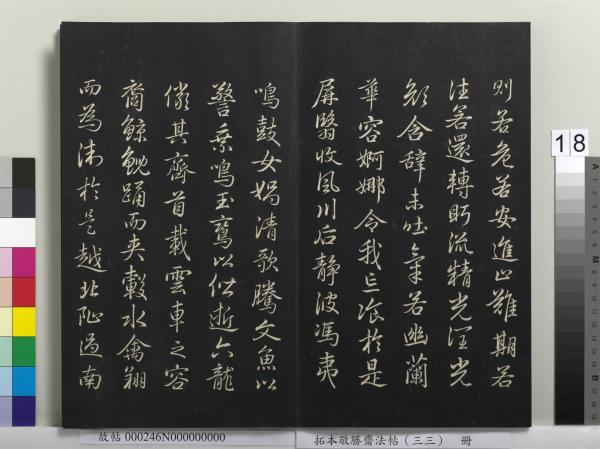 則若危若安進止難期若
往若還轉眄流精光潤玉
顏含辭未吐氣若幽蘭
華容婀娜令我忘飡於是
屏翳收風川后靜波馮夷
鳴鼓女媧清歌騰文魚以
警乘鳴玉鸞以偕逝六龍
儼其齊首載雲車之容
裔鯨鯢踊而夾轂水禽翔
而為衛於是越北沚過南
故帖 000246N000000000
拓本敬勝齋法帖（三三） 冊
18